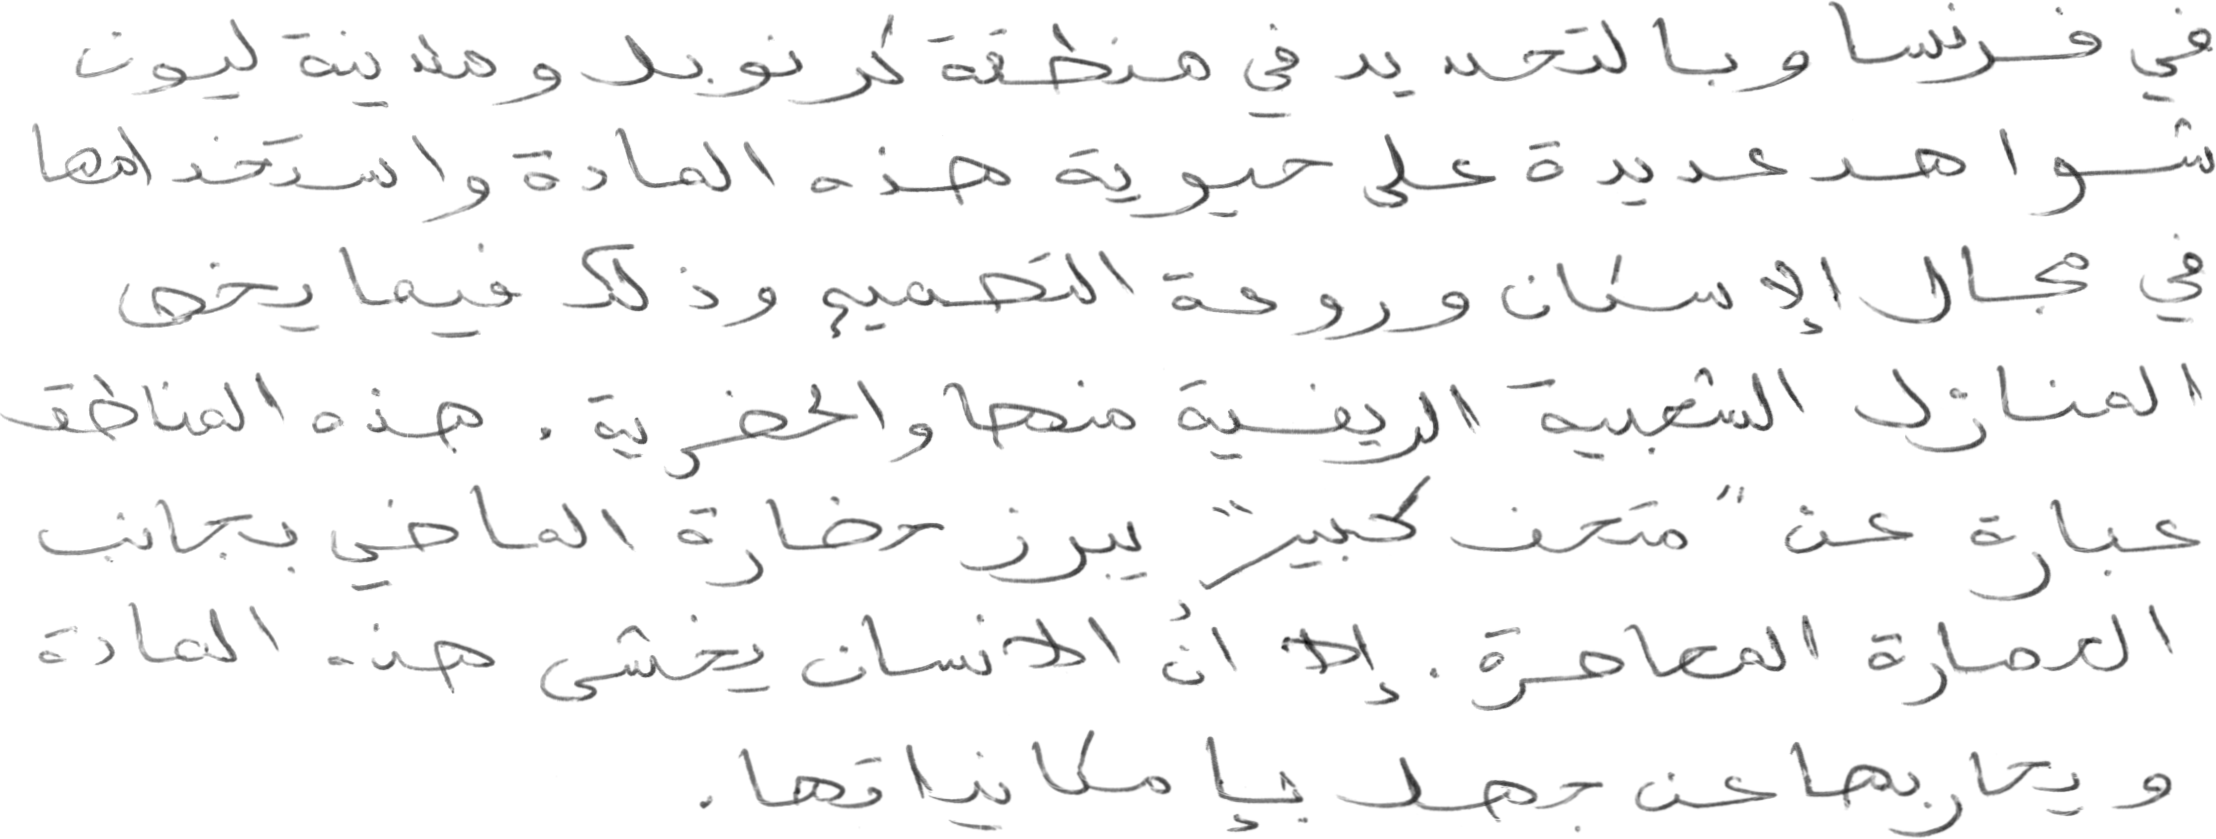 في فرنسا وبالتحديد في منطقة كرنوبل ومدينة ليون
شواهد عديدة على حيوية هذه المادة واستخدامها
في مجال الإسكان وروعة التصميم وذلك فيما يخص
المنازل الشعبية الريفية منها والحضرية. هذه المناطق
عبارة عن "متحف كبير" يبرز حضارة الماضي بجانب
العمارة المعاصرة. إلا انُ الانسان يخشى هذه المادة
ويحاربها عن جهل بإمكانياتها.